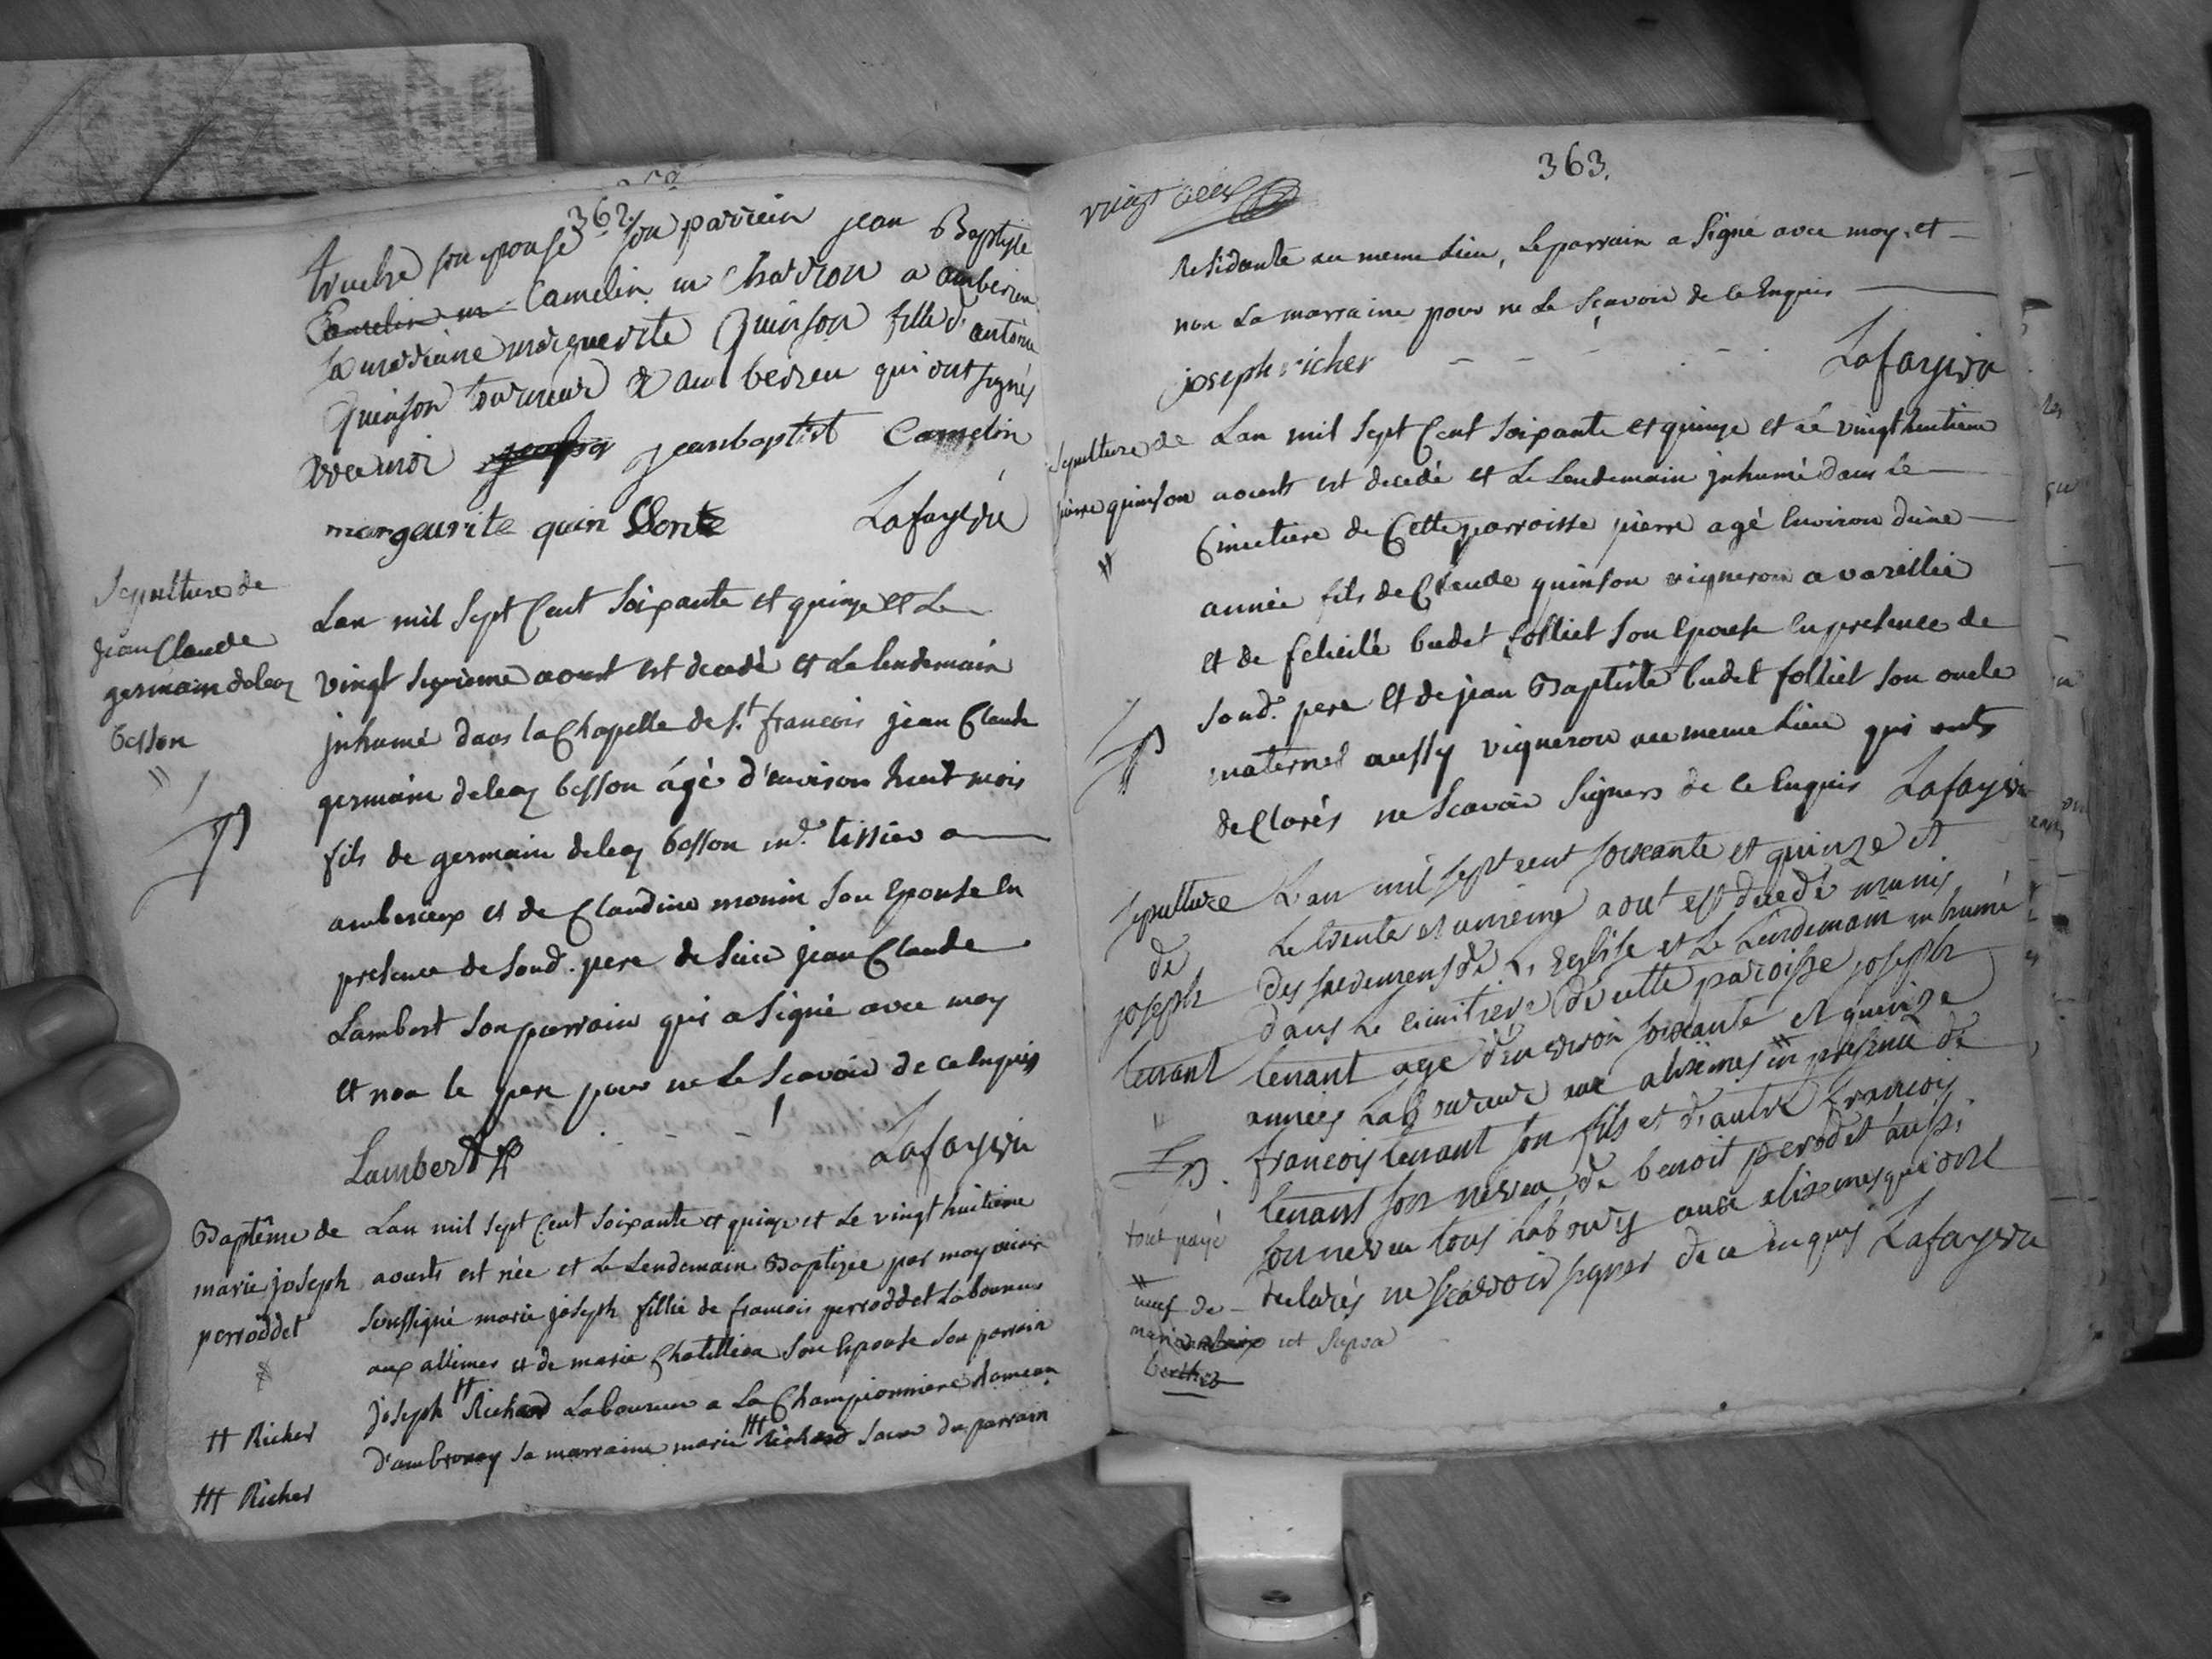 362.
truchet son epouse son parrein jean Baptiste
Camelin m Camelin m charron a amberieu
sa mareine marguerite Quinson fille d'antoine
Quinson tourneur d'amberieu qui ont signés
avec moi jeanbaptist Camelin
margeurite quin Sont Lafayvre
Sepulture de
jean Claude
germain deleaz
besson
Lan mil sept Cent soixante et quinze et Le
vingt sixieme aoust est decedé et Le lendemain
jnhumé dans la Chapelle de st francois jean Claude
germain deleaz besson agé d'environ huit mois
fils de germain deleaz besson md tissier a
amberieux et de Claudine monin son Epouse En
presence de soud. pere de luice jean Claude
Lambert son parrain qui a signé avec moy
et non le pere pour ne Le sçavoir de ce Enquis
Lambert Lafayvre
Baptême de
marie joseph
perroddet
Lan mil sept Cent soixante et quinze et Le vingt huitieme
aousts est née et Le Lendemain Baptizée par moy vicaire
soussigné marie joseph fillie de francois perroddet Laboureur
aux allimes et de marie Chatillion son Epouse son parrain
joseph ## Richard Laboureur a La Championniere hameau
d'ambronay sa marraine marie ### Richard soeur du parrain
## Richer
### Richer
363.
vingt deux
residante au meme Lieu, Le parrain a signé avec moy et
non La marraine pour ne Le sçavoir de ce Enquis
joseph richer Lafayvre
Sepulture de
pierre quinson
Lan mil sept Cent soixante et quinze et Le vingt huitieme
aousts est decedé et Le Lendemain jnhumé dans Le
Cimetiere de Cette parroisse pierre agé Environ d'une
année fils de Claude quinson vigneron a vareillie
et de felicité budet folliet son Epouse En presence de
soud. pere et de jean Baptiste budet folliet son oncle
maternel aussy vigneron au meme Lieu qui onts
declarés ne scavoir signers de ce Enquis Lafayvre
Sepulture
de
joseph
tenant
L'an mil sept cent soixante et quinze et
Le trente et unieme aout est decedé munis
des sacremens de L'Eglise et Le Lendemain inhumé
dans Le cimitiere de cette paroisse joseph
tenant agé d'environ soixante et quinze
années Laboureur aux alixmes # en presence de
francois tenant son fils et d'autre francois
tenant son neveu, de benoit perodet aussi
son neveu tous Labours aux alixmes qui ont
declarés ne scavoir signer de ce enquis Lafayvre
tout payé
# veuf de
marie
berthet ut supra